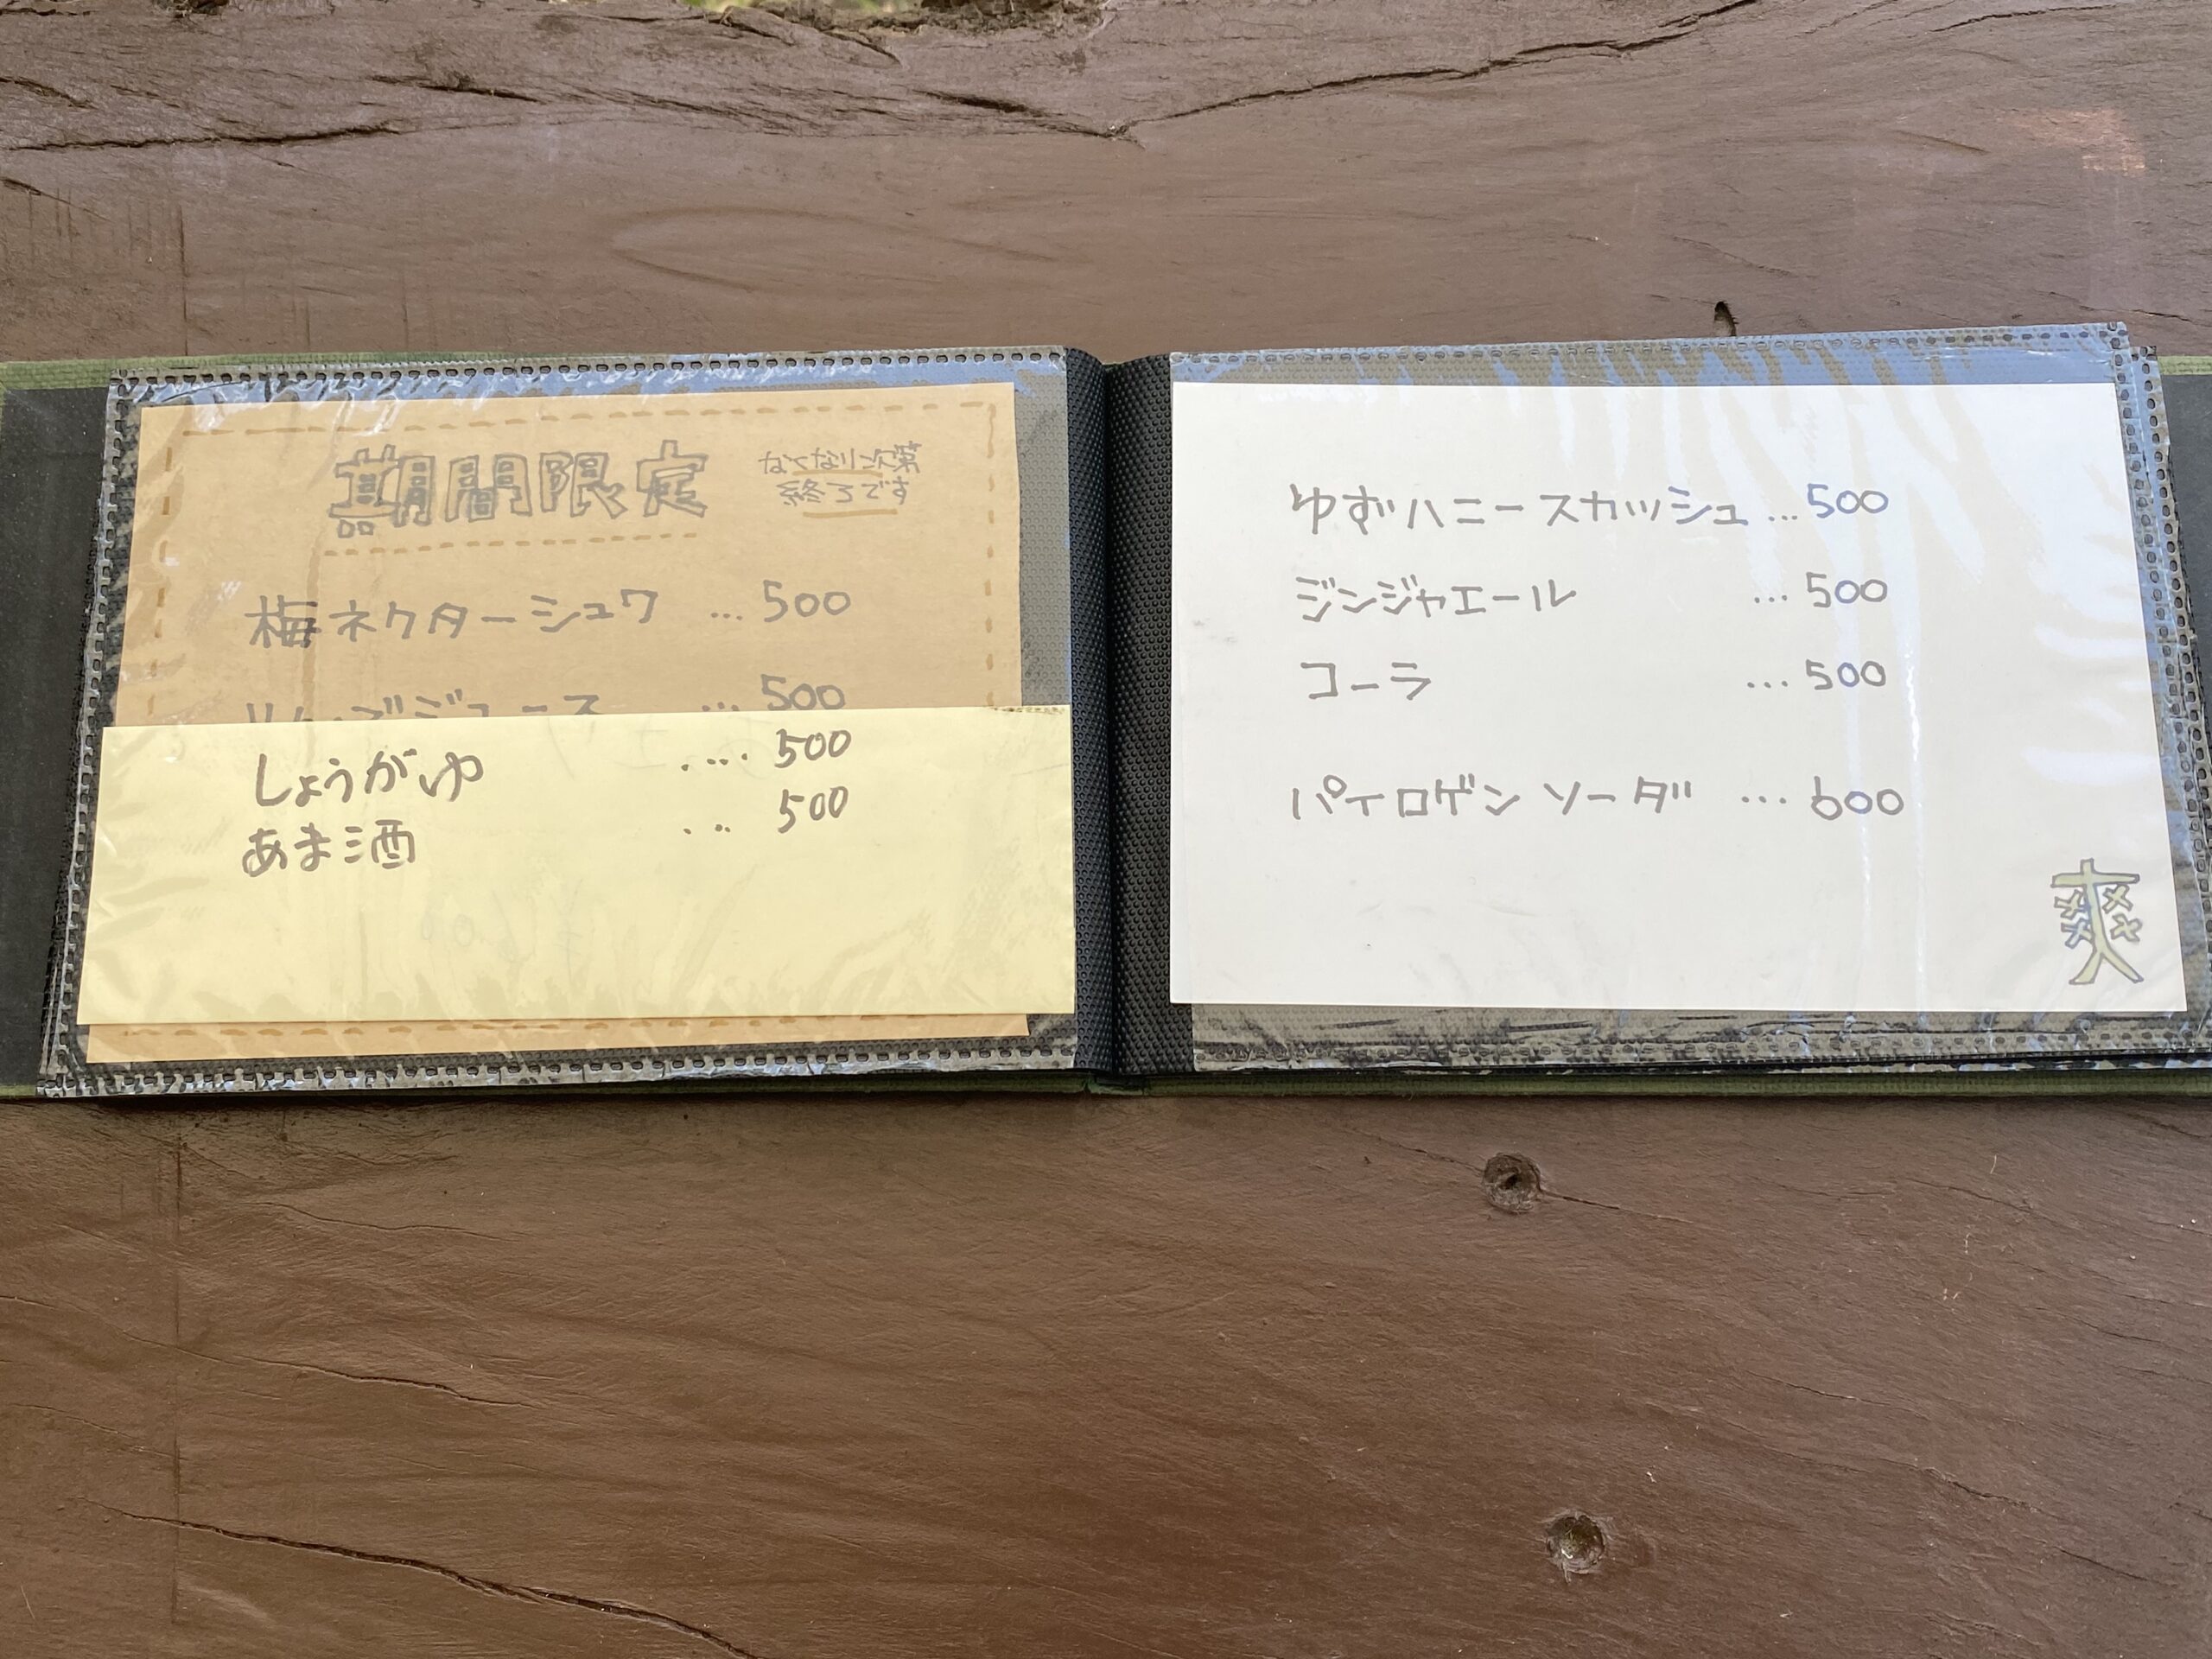 期間限定
なくなり次第
終了です
梅ネクターシュワ ... 500
りんごジュース ... 500
しょうがゆ .... 500
あま酒 ... 500
ゆずハニースカッシュ ... 500
ジンジャエール ... 500
コーラ ... 500
パイロゲン ソーダ ... 600
爽